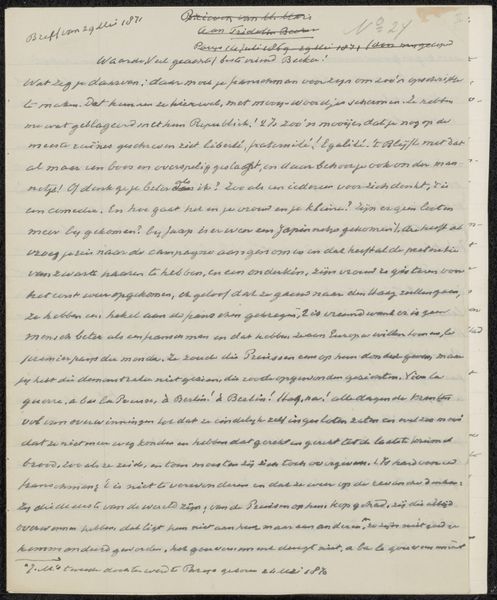 Brief van 29 Mei 1871
Brieven van M. Maris
Aan Fridolin Becker
No 24
Waarde, Veel geachte, bestevriend Becker!
Wat zeg je daarvan; daar moet je franschman voor zijn om zoo'n opschrift
te maken. Dat kunnen ze hier wel, met mooie woordjes schermen. Ze hebben
me wat geblageerd met hun Republiek! 't Is zoo'n mooijes dat je nog op de
meeste ruïnes geschreven ziet liberté, fraternité! Egalité. 't Blijft met dat
al maar een boos en overspelig geslacht, en daar behoor je ook onder man-
netje! Of denk je je beter als ik? Zoo als een iedereen voor zich denkt, 't is
een comedie. En hoe gaat het en je vrouw en je kleine? Zijn er geen loten
meer bij gekomen? bij Jaap is er weer een Japinnetje gekomen,
vroeg je zein naar de campagne aangenomen en dat heeft al de pretentie
van zwarte haren te hebben, en een onderkin, zijn vrouw is gisteren voor
het eerst weer opgekomen, ik geloof dat ze gauw naar den Haag zullen gaan,
ze hebben een hekel aan de franschen gekregen, 't is vreemd want er is geen
mensch beter als een franschman en dat hebben ze aan Europa willen toonen, le
premier pays du monde. Ze zoude die Pruissen eens op hun donder geven, maar
je hebt die demonstraties niet gezien, die roode opgewonden gezichten. Vive la
guerre, a bas la Prusse, à Berlin! à Berlin! Ha, ha! alle dagen de kranten
vol van overwinningen tot dat ze eindelijk zelf ingesloten zaten en wel zoo mooi
dat ze niet meer weg konden en hebben dat gerekt en gerekt tot de laatste kruimel
brood, zoo als ze zeide, en toen moesten zij zich toch overgeven. 't Is hard voor een
franschman; 't is niet te verwonderen en dat ze weer op de revanche
Zij die de eerste van de wereld zijn; van de Pruissen op hun kop gehad, zij die altijd
overwonnen hebben, dat ligt hun niet aan hun maar aan anderen, ze zijn niet goed ge-
kommandeerd geworden, het gouvernement deugt niet, a bas le gouvernement
J. M's tweede dochter werd te Parijs geboren 24 Mei 1870